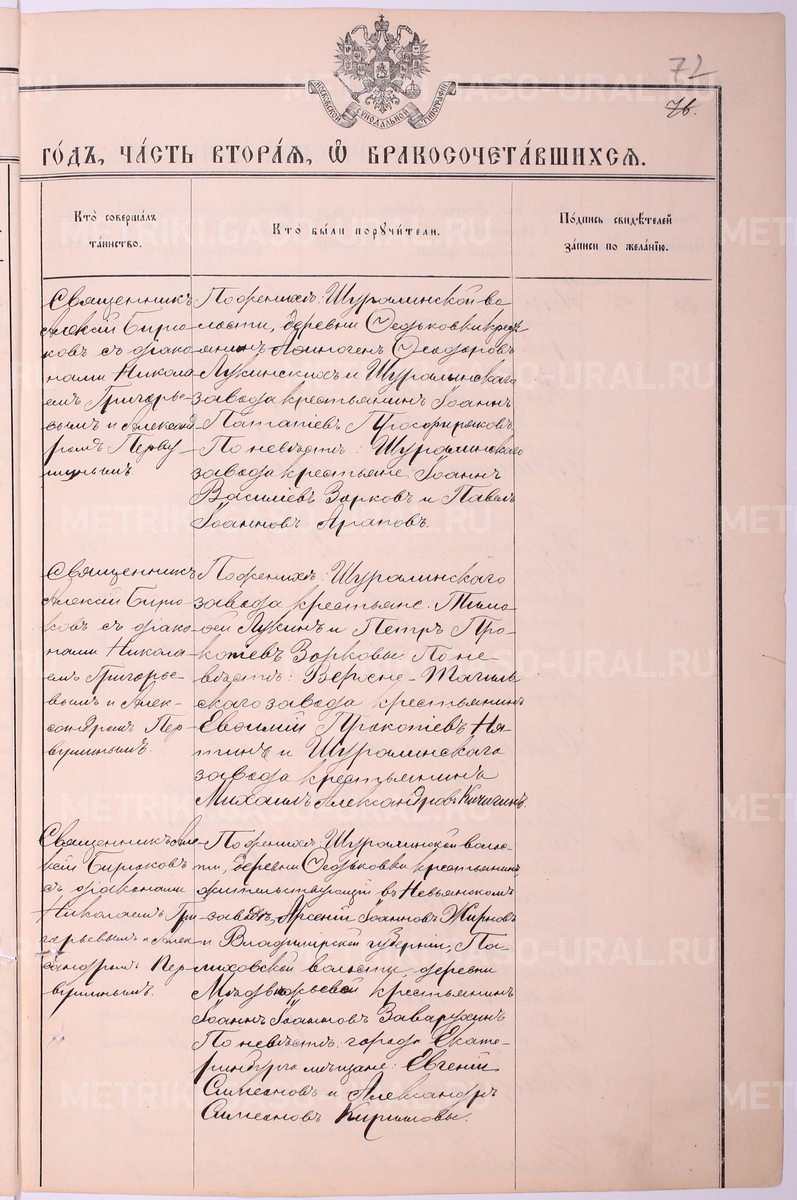 72
76.
МОСКОВСКОЙ СѴНОДАЛЬНОЙ ТИПОГРАФІИ
ГО́ДЪ, ЧА́СТЬ ВТОРА́Я, Ѡ҆ БРАКОСОЧЕТА́ВШИХСЯ.
Кто̀ соверша́лъ
та́инство.
Кто̀ бы́ли порꙋчи́тели.
По́дпись свидѣ́телей
за́писи по жела́нїю.
Священникъ
Алексій Бирю-
ковъ съ діако-
нами Никола-
емъ Григорье-
вымъ и Алексан
дромъ Перву
шинымъ.
По женихѣ: Шуралинской во
лости, деревни Ѳедьковки кресть
янинъ Аѳиногенъ Ѳеодоровъ
Лукинскихъ и Шуралинскаго
завода крестьянинъ Іоаннъ
Ипатіевъ
По невѣстѣ: Шуралинскаго
завода крестьяне: Іоаннъ
Василіевъ Зорковъ и Павелъ
Іоанновъ Араповъ.
Священникъ
Алексій Бирю-
ковъ съ діако-
нами Никола-
емъ Григорье-
вымъ и Алек-
сандромъ Пер-
вушинымъ.
По женихѣ: Шуралинскаго
завода крестьяне: Тимо-
ѳей Лукинъ и Петръ Про-
копіевъ Зорковы. По не-
вѣстѣ: Верхне-Тагиль
скаго завода крестьянинъ
Евѳимій Прокопіевъ
и Шуралинскаго
завода крестьянинъ
Михаилъ Александровъ Кичигинъ.
Священникъ Але-
ксій Бирюковъ
съ діаконами
Николаемъ Гри
горьевымъ и Алек
сандромъ Пер-
вушинымъ.
По женихѣ: Шуралинской волос-
ти, деревни Ѳедьковки крестьянинъ
жительствующій въ Невьянскомъ
заводѣ, Арсеній Іоанновъ Жирновъ
и Владимірской губерніи, Па-
лиховской волости, деревни
крестьянинъ
Іоаннъ Іоанновъ Заварухинъ
По невѣстѣ: города Екате-
ринбурга мѣщане: Евгеній
Симеоновъ и Александръ
Симеоновъ Кирилловы.